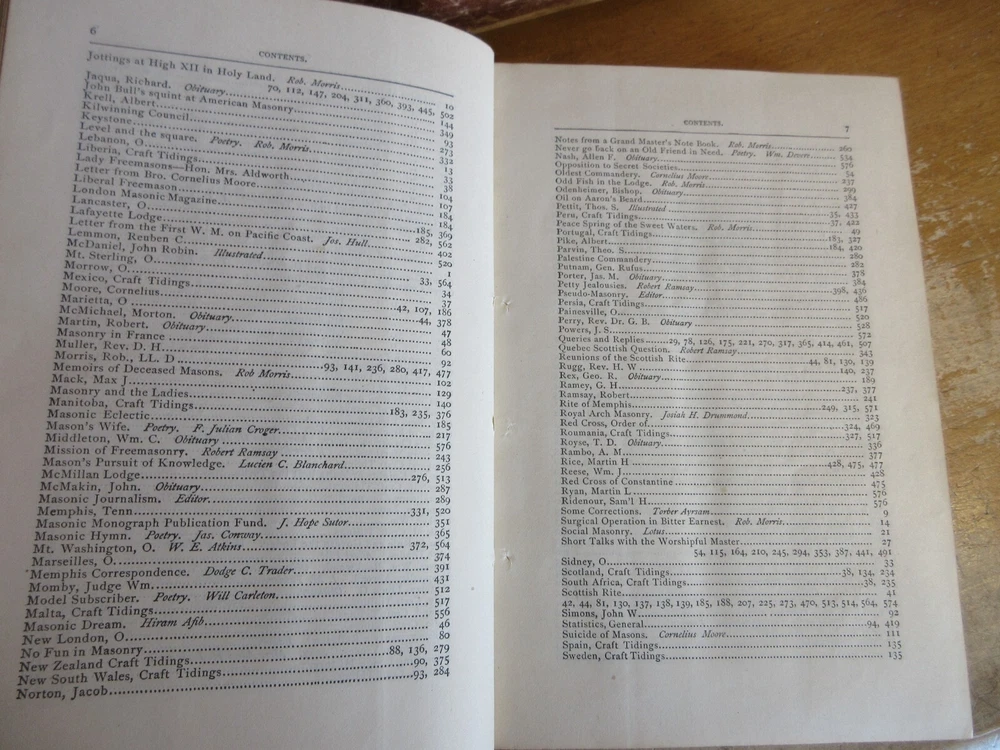 6
CONTENTS.
Jottings at High XII in Holy Land. Rob. Morris.......... 10
70, 112, 147, 204, 311, 360, 393, 445, 502
Jaqua, Richard. Obituary.......... 144
John Bull's squint at American Masonry.......... 349
Krell, Albert.......... 93
Kilwinning Council.......... 273
Keystone.......... 332
Level and the square. Poetry. Rob. Morris.......... 13
Lebanon, O.......... 33
Liberia, Craft Tidings.......... 38
Lady Freemasons—Hon. Mrs. Aldworth.......... 104
Letter from Bro. Cornelius Moore.......... 107
Liberal Freemason.......... 184
London Masonic Magazine.......... 184
Lancaster, O.......... 185, 369
Lafayette Lodge.......... 282, 562
Letter from the First W. M. on Pacific Coast. Jos. Hull.......... 402
Lemmon, Reuben C.......... 520
McDaniel, John Robin. Illustrated.......... 1
Mt. Sterling, O.......... 33, 564
Morrow, O.......... 34
Mexico, Craft Tidings.......... 37
Moore, Cornelius.......... 42, 107, 186
Marietta, O.......... 44, 378
McMichael, Morton. Obituary.......... 47
Martin, Robert. Obituary.......... 48
Masonry in France.......... 60
Muller, Rev. D. H.......... 92
Morris, Rob., LL. D.......... 93, 141, 236, 280, 417, 477
Memoirs of Deceased Masons. Rob Morris.......... 102
Mack, Max J.......... 129
Masonry and the Ladies.......... 140
Manitoba, Craft Tidings.......... 183, 235, 376
Masonic Eclectic.......... 185
Mason's Wife. Poetry. F. Julian Croger.......... 217
Middleton, Wm. C. Obituary.......... 576
Mission of Freemasonry. Robert Ramsay.......... 243
Mason's Pursuit of Knowledge. Lucien C. Blanchard.......... 256
McMillan Lodge.......... 276, 513
McMakin, John. Obituary.......... 287
Masonic Journalism. Editor.......... 289
Memphis, Tenn.......... 331, 520
Masonic Monograph Publication Fund. J. Hope Sutor.......... 351
Masonic Hymn. Poetry. Jas. Conway.......... 365
Mt. Washington, O. W. E. Atkins.......... 372, 564
Marseilles, O.......... 374
Memphis Correspondence. Dodge C. Trader.......... 391
Momby, Judge Wm.......... 431
Model Subscriber. Poetry. Will Carleton.......... 512
Malta, Craft Tidings.......... 517
Masonic Dream. Hiram Afib.......... 556
New London, O.......... 46
No Fun in Masonry.......... 80
New Zealand Craft Tidings.......... 88, 136, 279
New South Wales, Craft Tidings.......... 90, 375
Norton, Jacob.......... 93, 284
CONTENTS. 7
Notes from a Grand Master's Note Book. Rob. Morris.......... 262
Never go back on an Old Friend in Need. Poetry. Wm. Devere.......... 554
Nash, Allen F. Obituary.......... 576
Opposition to Secret Societies.......... 54
Oldest Commandery. Cornelius Moore.......... 237
Odd Fish in the Lodge. Rob. Morris.......... 299
Odenheimer, Bishop. Obituary.......... 384
Oil on Aaron's Beard.......... 427
Pettit, Thos. S. Illustrated.......... 35, 433
Peru, Craft Tidings.......... 37, 422
Peace Spring of the Sweet Waters. Rob. Morris.......... 49
Portugal, Craft Tidings.......... 183, 327
Pike, Albert.......... 184, 420
Parvin, Theo. S.......... 280
Palestine Commandery.......... 282
Putnam, Gen. Rufus.......... 378
Porter, Jas. M. Obituary.......... 384
Petty Jealousies. Robert Ramsay.......... 398, 436
Pseudo-Masonry. Editor.......... 486
Persia, Craft Tidings.......... 517
Painesville, O.......... 520
Perry, Rev. Dr. G. B. Obituary.......... 528
Powers, J. S.......... 572
Queries and Replies.......... 29, 78, 126, 175, 221, 270, 317, 365, 414, 461, 507
Quebec Scottish Question. Robert Ramsay.......... 343
Reunions of the Scottish Rite.......... 44, 81, 130, 139
Rugg, Rev. H. W.......... 140, 237
Rex, Geo. R. Obituary.......... 189
Ramey, G. H.......... 237, 377
Ramsay, Robert.......... 241
Rite of Memphis.......... 249, 315, 571
Royal Arch Masonry. Josiah H. Drummond.......... 323
Red Cross, Order of.......... 324, 469
Roumania, Craft Tidings.......... 327, 517
Royse, T. D. Obituary.......... 336
Rambo, A. M.......... 377
Rice, Martin H.......... 428, 475, 477
Reese, Wm. J.......... 428
Red Cross of Constantine.......... 475
Ryan, Martin L.......... 576
Ridenour, Sam'l H.......... 576
Some Corrections. Torber Ayrsam.......... 9
Surgical Operation in Bitter Earnest. Rob. Morris.......... 14
Social Masonry. Lotus.......... 21
Short Talks with the Worshipful Master.......... 27
54, 115, 164, 210, 245, 294, 353, 387, 441, 491
Sidney, O.......... 33
Scotland, Craft Tidings.......... 38, 134, 234
South Africa, Craft Tidings.......... 38, 235
Scottish Rite.......... 41
42, 44, 81, 130, 137, 138, 139, 185, 188, 207, 225, 273, 470, 513, 514, 564, 574
Simons, John W.......... 92
Statistics, General.......... 94, 419
Suicide of Masons. Cornelius Moore.......... 111
Spain, Craft Tidings.......... 135
Sweden, Craft Tidings.......... 135